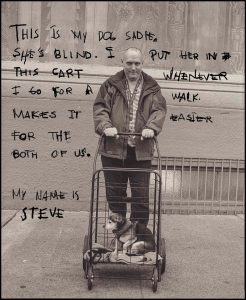 THIS IS MY DOG SADIE.
SHE'S BLIND. I PUT HER IN
THIS CART WHENEVER
I GO FOR A WALK.
MAKES IT EASIER
FOR THE
BOTH OF US.
MY NAME IS
STEVE